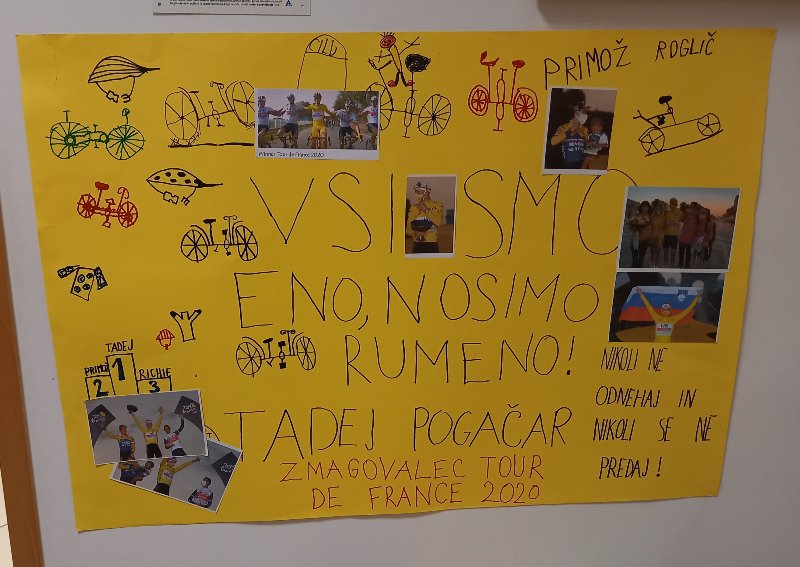 CILJ
PRIMOŽ ROGLIČ
Winner Tour de France 2020
VSI SMO
ENO, NOSIMO
RUMENO!
TADEJ
PRIMOŽ
RICHIE
1
2
3
NIKOLI NE
ODNEHAJ IN
NIKOLI SE NE
PREDAJ!
TADEJ POGAČAR
ZMAGOVALEC TOUR
DE FRANCE 2020